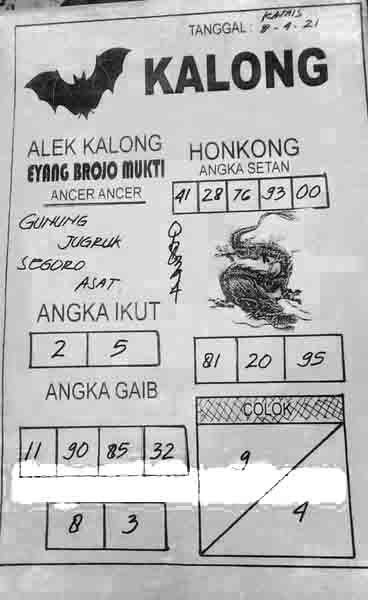 KAMIS
TANGGAL : 8-4-21
KALONG
ALEK KALONG
EYANG BROJO MUKTI
ANCER ANCER
GUNUNG
JUGRUK
SEGORO
ASAT
ANGKA IKUT
2 5
ANGKA GAIB
11 90 85 32
8 3
HONKONG
ANGKA SETAN
41 28 76 93 00
81 20 95
COLOK
9
4